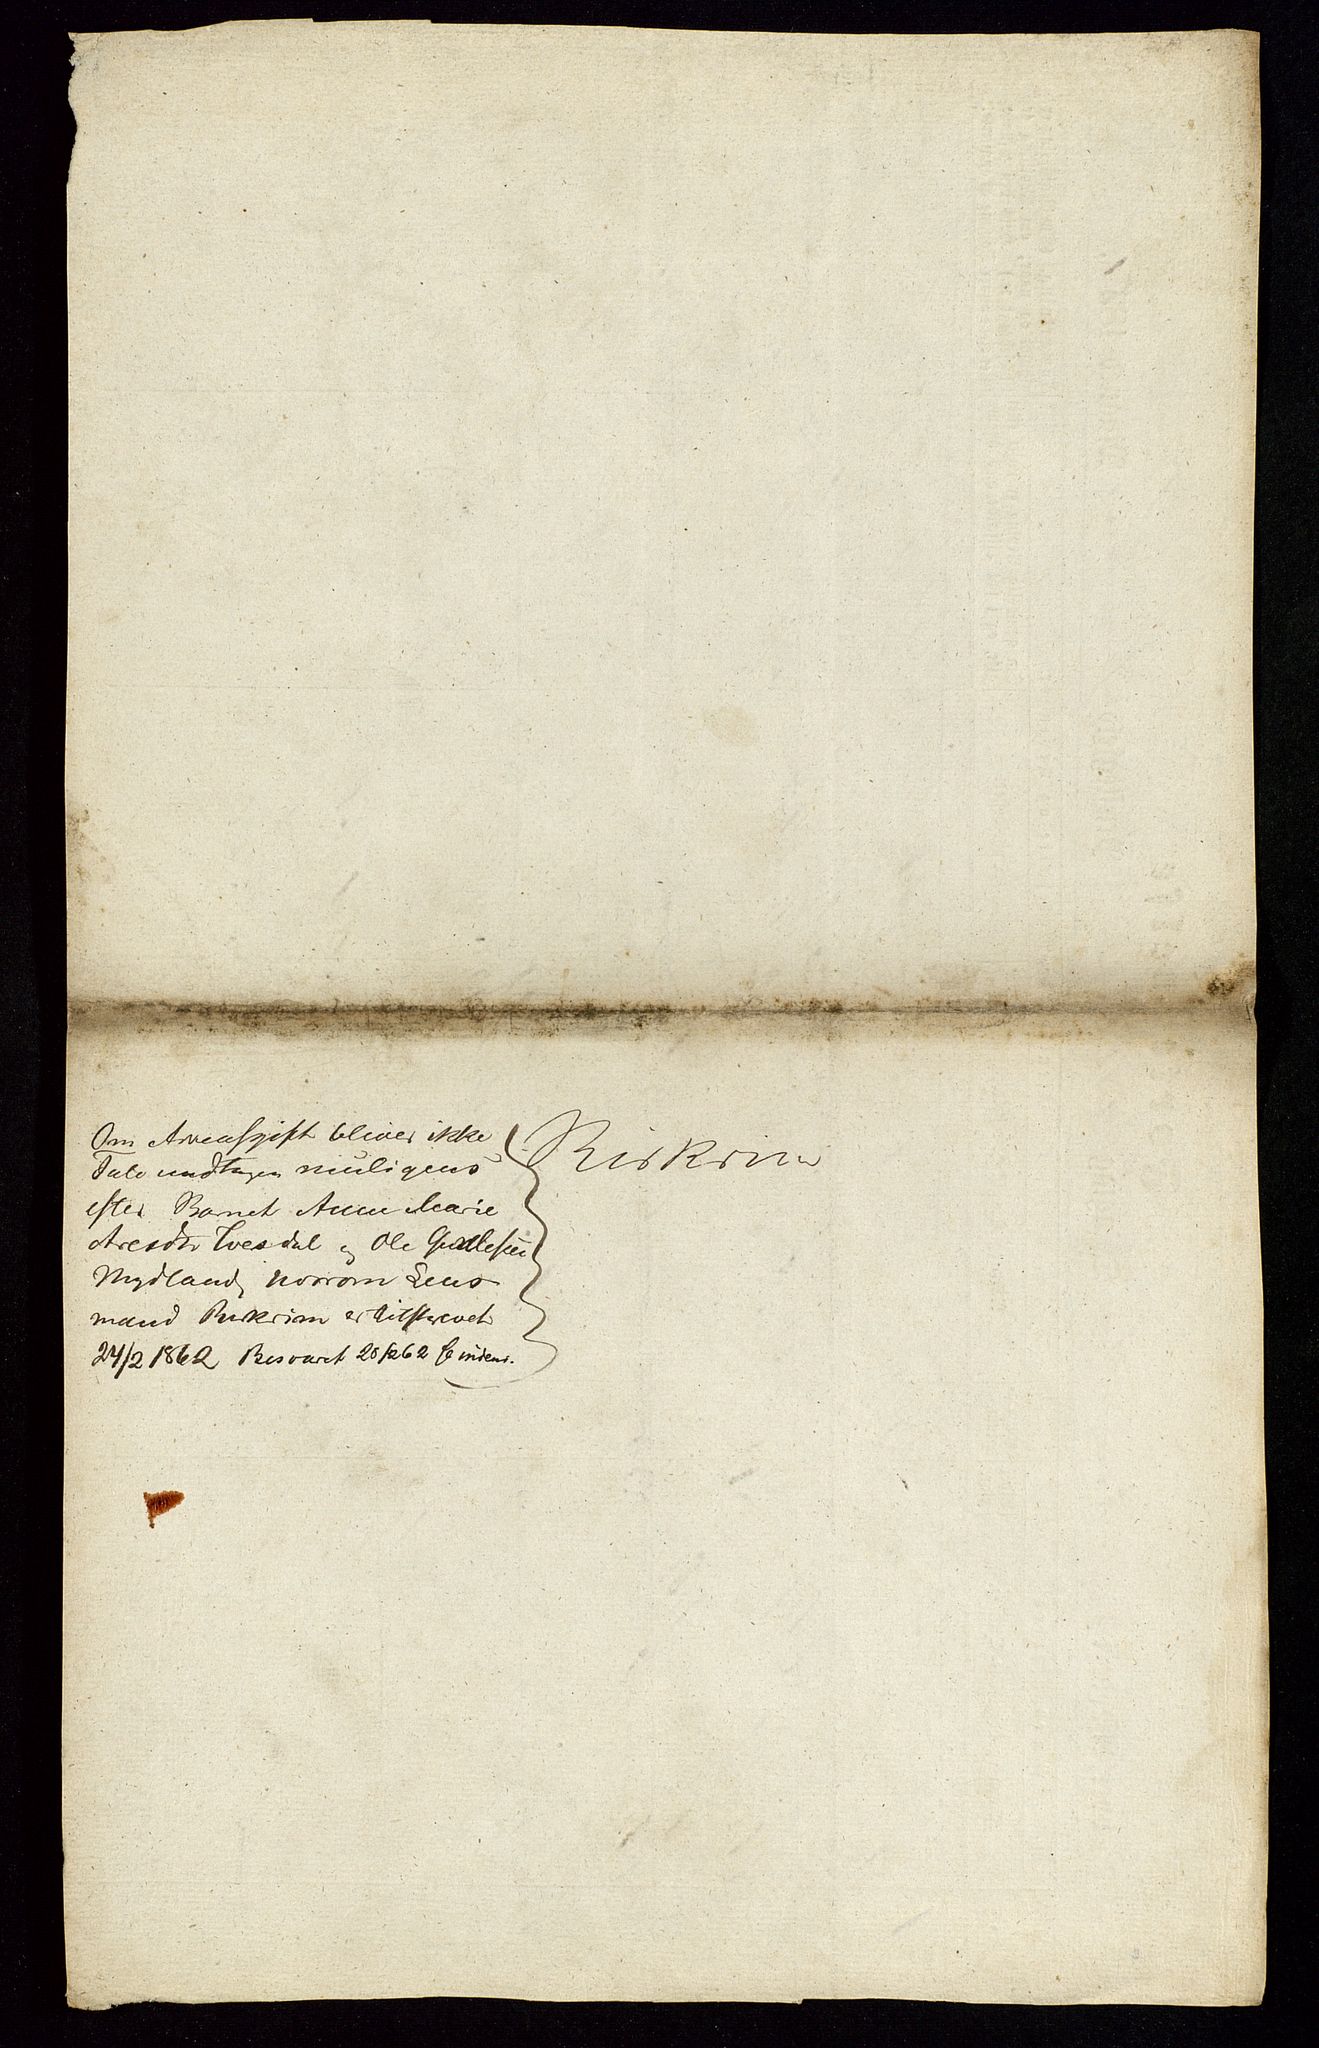 Om Arveafgift bliver ikke
Tale undtagen muligens
efter Barnet Anne Marie
Aresdtr Tvesdal og Ole
Mydland, hvorom Lens
mand Birkrim er tilskrevet
24/2 1862 Besvaret 28/262
Birkrim